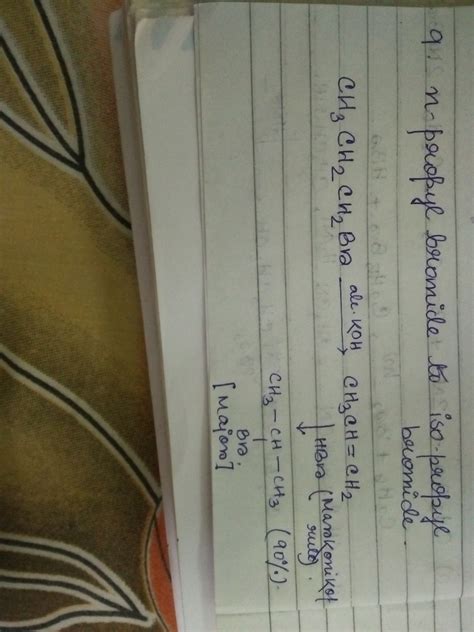 9 n-propyl bromide to iso-propyl
bromide.
CH3 CH2 CH2 Br alc. KOH → CH3CH = CH2
↓ HBr (Markonikof
rule).
CH3 – CH – CH3 (90%).
Br.
[Major]